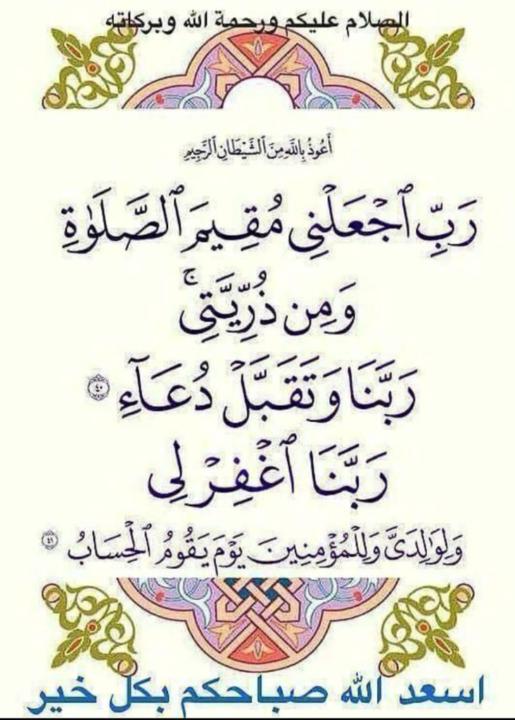 السلام عليكم ورحمة الله وبركاته
أعوذ بالله من الشيطان الرجيم
رَبِّ ٱجْعَلْنِى مُقِيمَ ٱلصَّلَوٰةِ
وَمِن ذُرِّيَّتِى ۚ
رَبَّنَا وَتَقَبَّلْ دُعَآءِ ٤٠
رَبَّنَا ٱغْفِرْ لِى
وَلِوَٰلِدَىَّ وَلِلْمُؤْمِنِينَ يَوْمَ يَقُومُ ٱلْحِسَابُ ٤١
اسعد الله صباحكم بكل خير